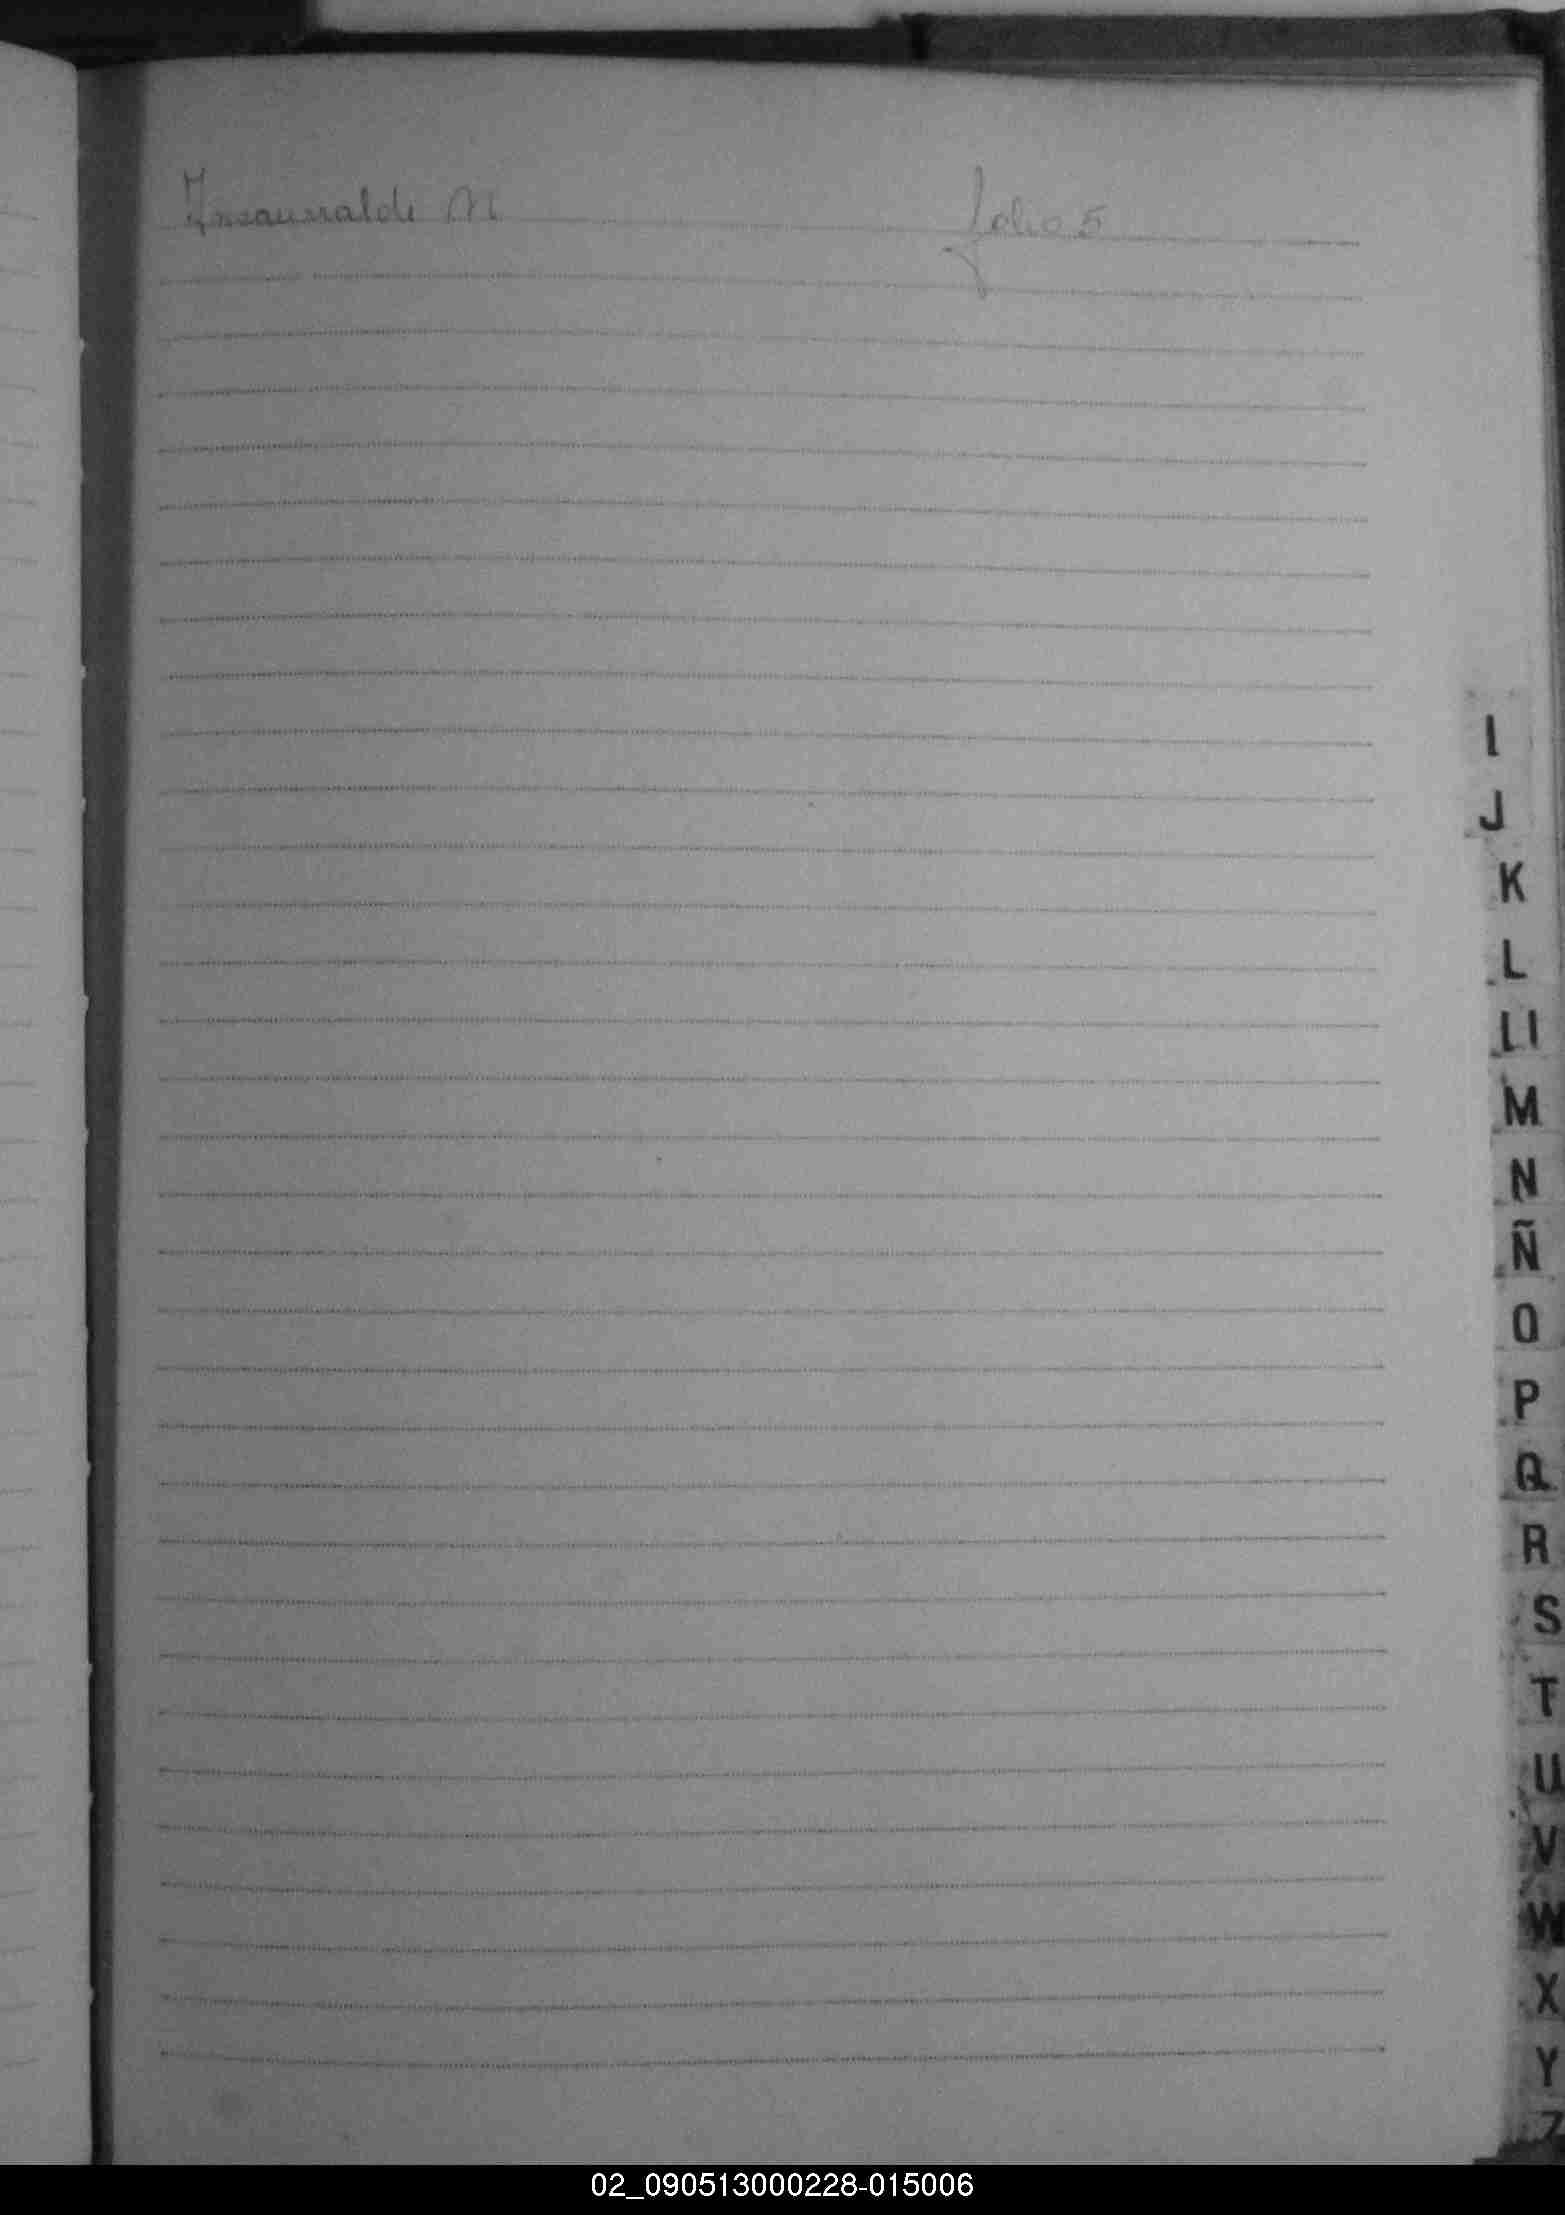 Insaurralde M folio 5
I
J
K
L
Ll
M
N
Ñ
O
P
Q
R
S
T
U
V
W
X
Y
Z
02_090513000228-015006